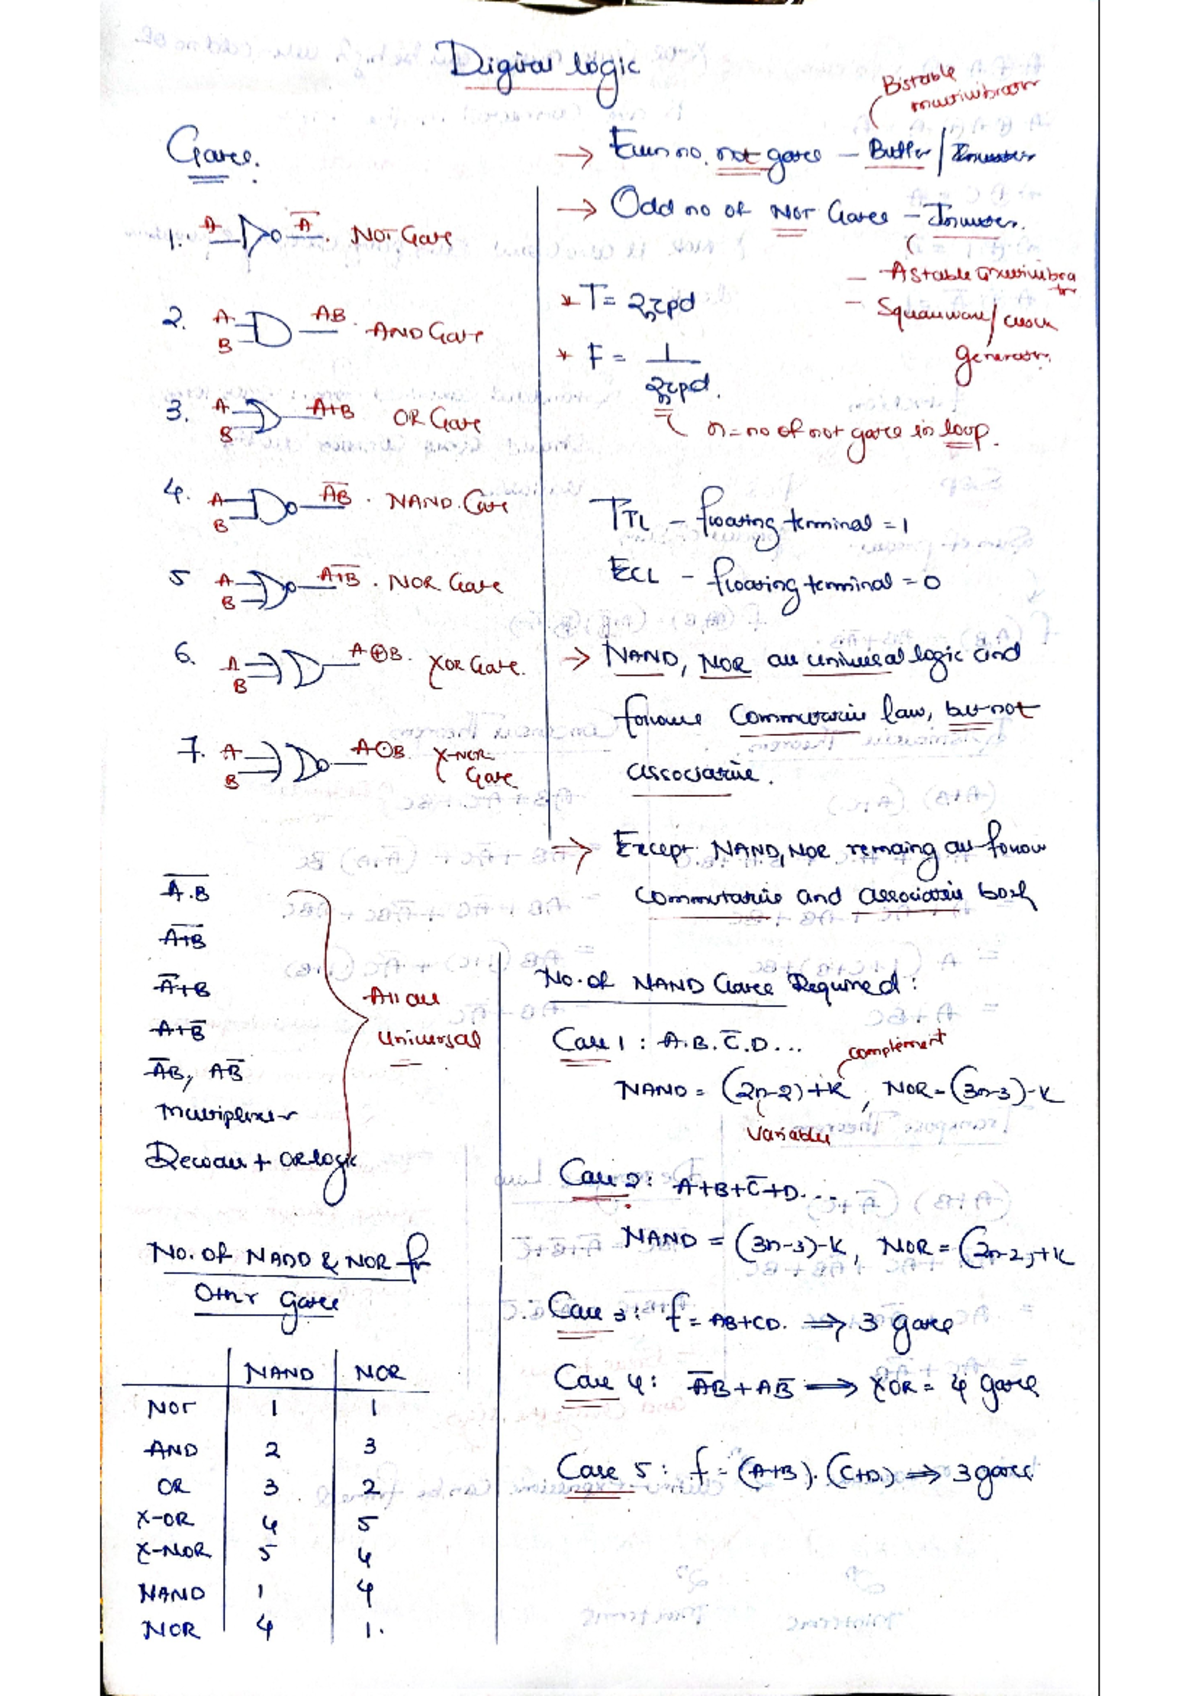 Digital logic
Gates.
1. A A̅ . NOT Gate
2. A B AB . AND Gate
3. A B A+B OR Gate
4. A B A̅B̅ . NAND Gate
5 A B A̅+̅B̅ . NOR Gate
6. A B A⊕B. XOR Gate.
7. A B A⊙B. X-NOR Gate
Bistable
multivibrator
→ Even no. not gates – Buffer / Inverter
→ Odd no of NOT Gates – Inverter.
– Astable multivibra
tor
– Squarewave/clock
generator.
* T = 2nτpd
* F = 1
2nτpd.
n = no of not gates in loop.
TTL – floating terminal = 1
ECL – floating terminal = 0
→ NAND, NOR are universal logic and
follows Commutative law, but not
associative.
→ Except NAND, NOR remaing all follow
commutative and associative both
A̅.̅B̅
A̅+̅B̅
A̅+B
A+B̅
A̅B, AB̅
Multiplexer
Decoder + OR logic
All are
universal
No. of NAND & NOR for
Other gates
NAND NOR
NOT 1 1
AND 2 3
OR 3 2
X-OR 4 5
X-NOR 5 4
NAND 1 4
NOR 4 1.
No. of NAND Gates Required :
Case 1 : A.B.C̅.D...
complement
NAND = (2n-2)+K, NOR = (3n-3)-K
variables
Case 2: A+B+C̅+D....
NAND = (3n-3)-K, NOR = (2n-2)+K
Case 3: f = AB+CD. ⟹ 3 gates
Case 4: A̅B+AB̅ ⟹ XOR = 4 gates
Case 5 : f = (A+B).(C+D) ⟹ 3 gates